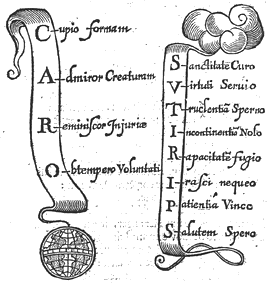 Cupio formam
Admiror Creaturam
Reminiscor Injuriæ
Obtempero Voluntati
Sanctitatē Curo
Virtuti Seruio
Truclentiā Sperno
Incontinentiā Nolo
Rapacitatē fugio
Irasci nequeo
Patientiā Vinco
Salutem Spero